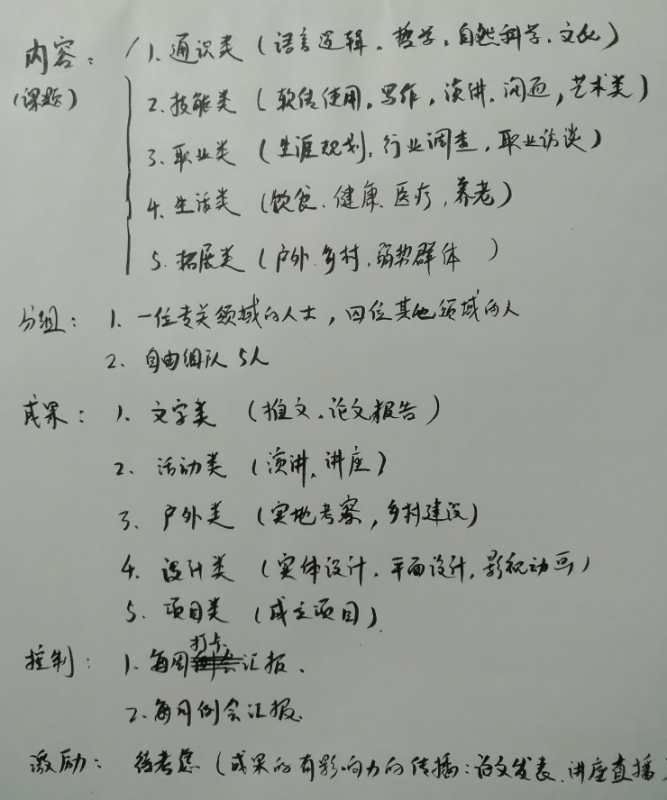 内容： 1. 通识类（语言逻辑、哲学、自然科学、文化）
(课题) 2. 技能类（软件使用，写作，演讲、阅适，艺术类）
3. 职业类（生涯规划，行业调查，职业访谈）
4. 生活类（饮食、健康、医疗，养老）
5. 拓展类（户外、乡村、弱势群体 ）
分组： 1. 一位专关领域的人士，四位其他领域的人
2. 自由组队 5人
成果： 1. 文字类（推文、论文报告）
2. 活动类（演讲，讲座）
3. 户外类（实地考察，乡村建设）
4. 设计类（实体设计、平面设计，影视动画）
5. 项目类（成立项目）
控制： 1. 每周打卡汇报、
2. 每月例会汇报.
激励： 待考虑（成果的有影响力的传播：论文发表、讲座直播）